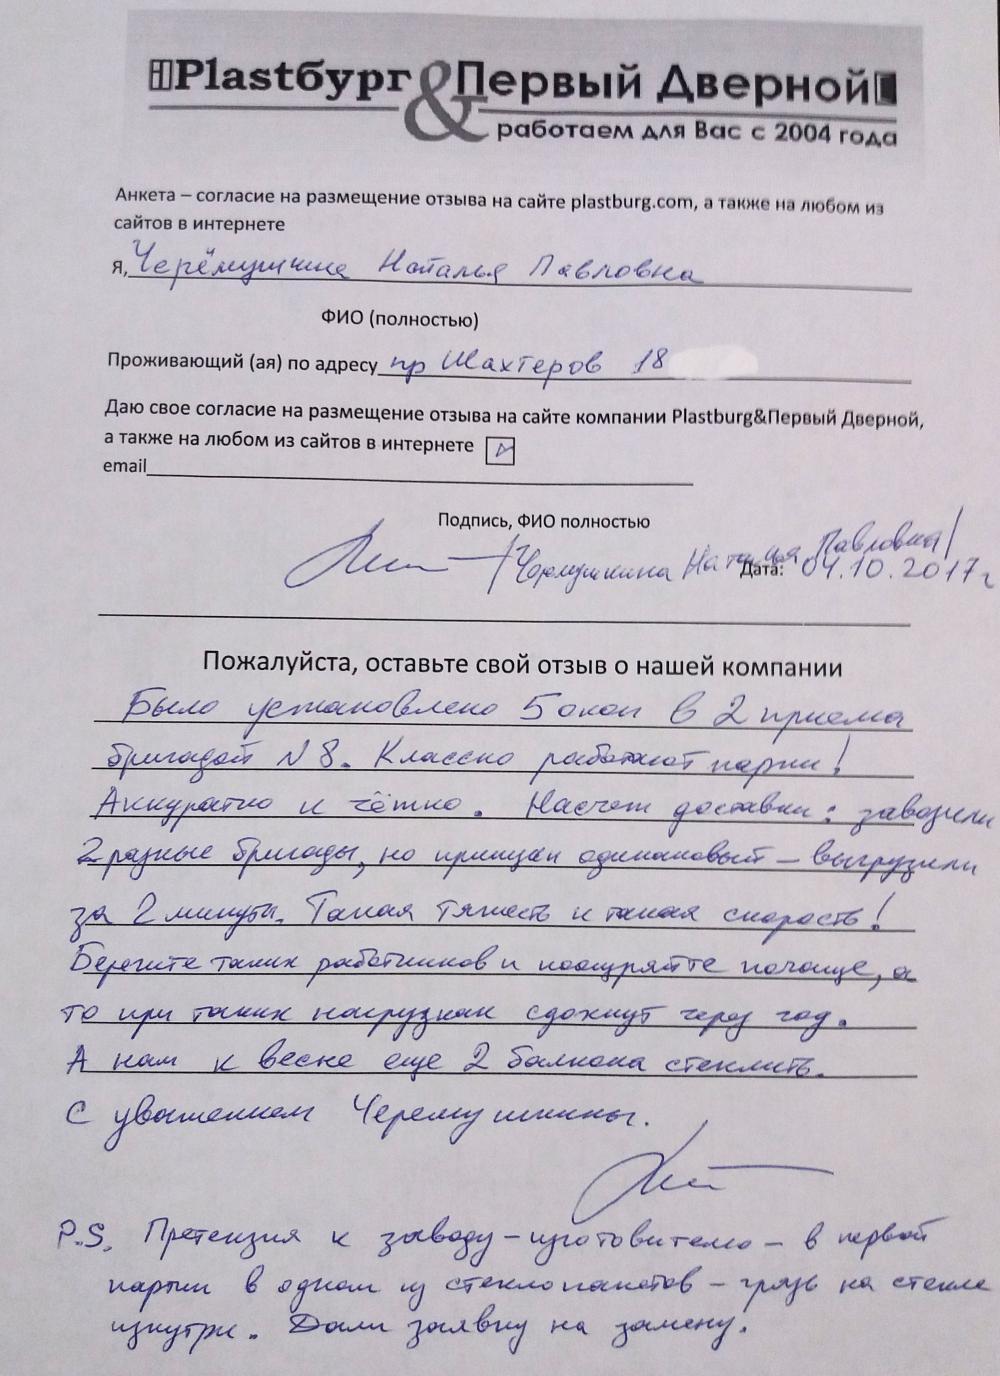 Plastбург & Первый Дверной
работаем для Вас с 2004 года
Анкета – согласие на размещение отзыва на сайте plastburg.com, а также на любом из
сайтов в интернете
Я, Черёмушкина Наталья Павловна
ФИО (полностью)
Проживающий (ая) по адресу пр Шахтеров 18
Даю свое согласие на размещение отзыва на сайте компании Plastburg&Первый Дверной,
а также на любом из сайтов в интернете
email
Подпись, ФИО полностью
/Черемушкина Наталья Павловна/
Дата: 04.10.2017г
Пожалуйста, оставьте свой отзыв о нашей компании
Было установлено 5 окон в 2 приема
бригадой N 8. Классно работают парни!
Аккуратно и чётко. Насчет доставки: завозили
2 разные бригады, но принцип одинаковый – выгрузили
за 2 минуты. Такая тяжесть и такая скорость!
Берегите таких работников и поощряйте почаще, а
то при таких нагрузках сдохнут через год.
А нам к весне еще 2 балкона стеклить.
С уважением Черемушкины.
P.S. Претензия к заводу-изготовителю – в первой
партии в одном из стеклопакетов – грязь на стекле
изнутри. Дали заявку на замену.